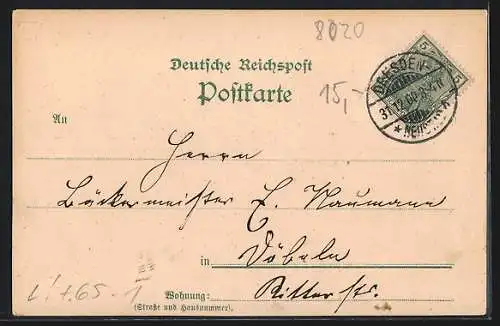 8020
Deutsche Reichspost
Postkarte
15,-
5
5
DRESDEN-
An
Herrn
Bäckermeister E. Naumann
in Döbeln
Wohnung: Ritterstr.
(Straße und Hausnummer).